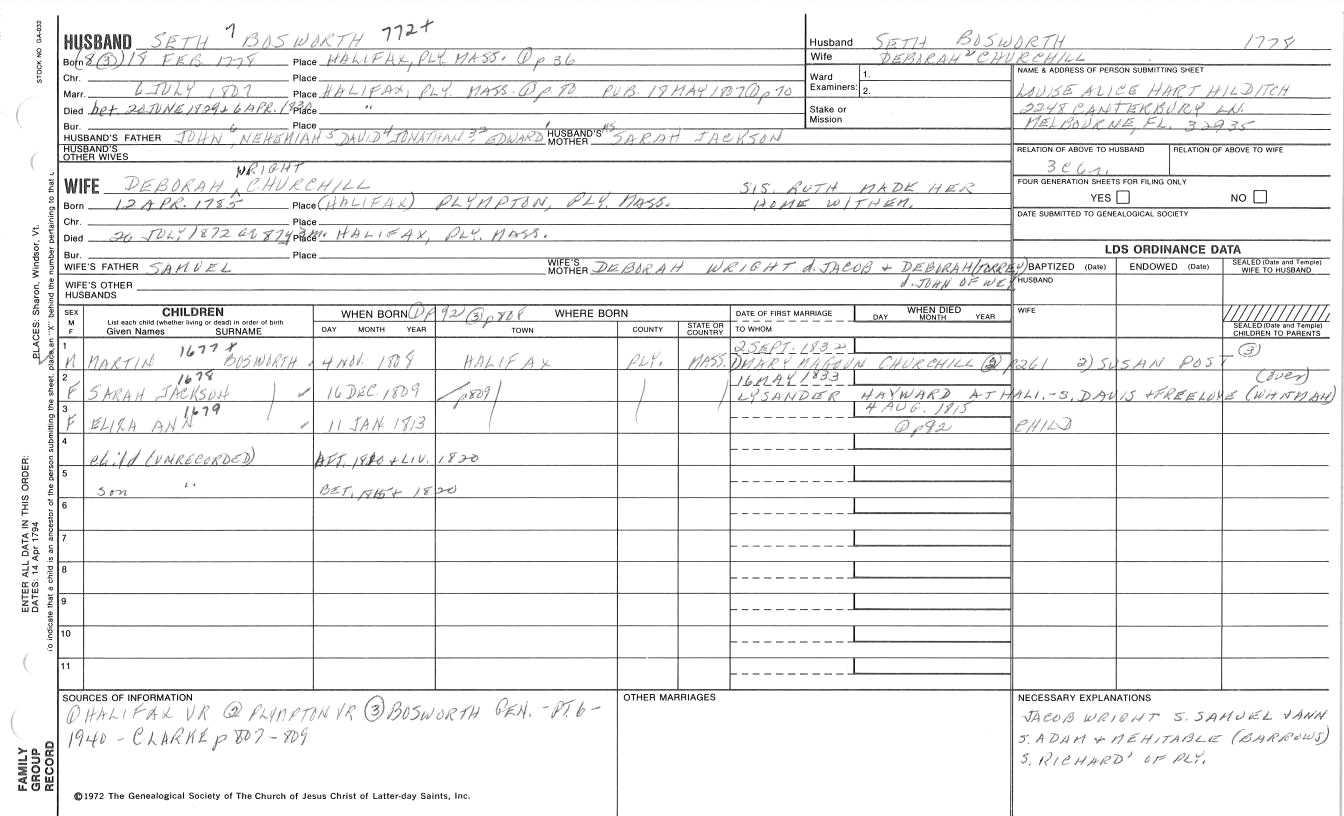 STOCK NO GA-032
PLACES: Sharon, Windsor, Vt.
ENTER ALL DATA IN THIS ORDER:
DATES: 14 Apr 1794
To indicate that a child is an ancestor of the person submitting the sheet, place an "X" behind the number pertaining to that
FAMILY GROUP RECORD
HUSBAND SETH 7 BOSWORTH 772+
Born (8 ③) 18 FEB 1778 Place HALIFAX, PLY. MASS. ① p 36
Chr. Place
Marr. 6 JULY 1807 Place HALIFAX, PLY. MASS. ① p 70 PUB. 18 MAY 1807 ① p 70
Died bet. 20 JUNE 1829 + 6 APR. 1830 Place "
Bur. Place
HUSBAND'S FATHER JOHN 6 NEHEMIAH 5 DAVID 4 JONATHAN 32 EDWARD 1 HUSBAND'S MOTHER SARAH JACKSON
HUSBAND'S OTHER WIVES
WRIGHT
WIFE DEBORAH ^ CHURCHILL SIS. RUTH MADE HER
Born 12 APR. 1785 Place (HALIFAX) PLYMPTON, PLY. MASS. HOME WITHEM.
Chr. Place
Died 26 JULY 1872 Place HALIFAX, PLY. MASS.
Bur. Place
WIFE'S FATHER SAMUEL WIFE'S MOTHER DEBORAH WRIGHT d. JACOB + DEBORAH (TORREY)
WIFE'S OTHER HUSBANDS d. JOHN OF WEY
Husband SETH BOSWORTH 1778
Wife DEBORAH CHURCHILL
Ward Examiners: 1.
2.
Stake or Mission
NAME & ADDRESS OF PERSON SUBMITTING SHEET
LOUISE ALICE HART HILDITCH
2248 CANTERBURY LN.
MELBOURNE, FL. 32935
RELATION OF ABOVE TO HUSBAND RELATION OF ABOVE TO WIFE
FOUR GENERATION SHEETS FOR FILING ONLY
YES NO
DATE SUBMITTED TO GENEALOGICAL SOCIETY
LDS ORDINANCE DATA
BAPTIZED (Date) ENDOWED (Date) SEALED (Date and Temple) WIFE TO HUSBAND
HUSBAND
WIFE
SEALED (Date and Temple) CHILDREN TO PARENTS
SEX M F CHILDREN WHEN BORN ① p 92 ③ p 808 WHERE BORN DATE OF FIRST MARRIAGE WHEN DIED
List each child (whether living or dead) in order of birth
Given Names SURNAME DAY MONTH YEAR TOWN COUNTY STATE OR COUNTRY TO WHOM DAY MONTH YEAR
1 1677 x 2 SEPT. 1832 ③
M MARTIN BOSWORTH 4 NOV. 1808 HALIFAX PLY. MASS. MARY MAGOUN CHURCHILL ② p261 2) SUSAN POST
2 1678 16 MAY 1833 (over)
F SARAH JACKSON ✓ 16 DEC 1809 p809 LYSANDER HAYWARD AT HALI.-S. DAVIS + FREELOVE (WHITMAN)
3 1679 4 AUG. 1815
F ELIZA ANN ✓ 11 JAN. 1813 ① p92 CHILD
4 child (UNRECORDED) AFT. 1810 + LIV. 1820
5 son " BET. 1815 + 1820
6
7
8
9
10
11
SOURCES OF INFORMATION
① HALIFAX VR ② PLYMPTON VR ③ BOSWORTH GEN. - PT. 6 -
1940 - CLARKE p 807 - 809
©1972 The Genealogical Society of The Church of Jesus Christ of Latter-day Saints, Inc.
OTHER MARRIAGES
NECESSARY EXPLANATIONS
JACOB WRIGHT S. SAMUEL + ANN
S. ADAM + MEHITABLE (BARROWS)
S. RICHARD' OF PLY.